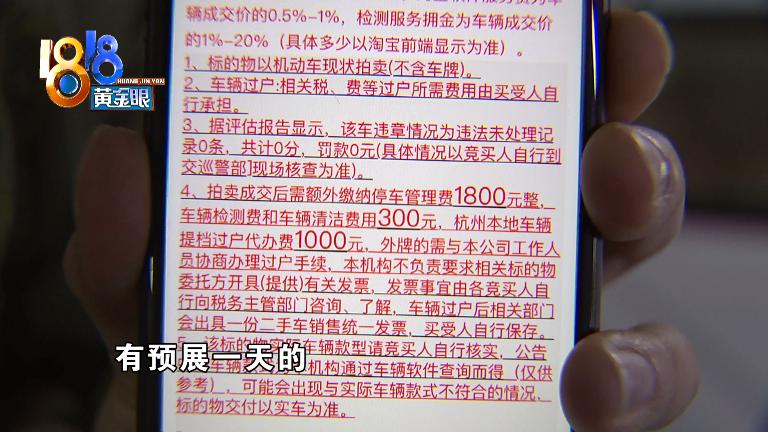 辆成交价的0.5%-1%，检测服务拥金为车辆成交价
的1%-20%（具体多少以淘宝前端显示为准）。
1、标的物以机动车现状拍卖(不含车牌)。
2、车辆过户:相关税、费等过户所需费用由买受人自
行承担。
3、据评估报告显示，该车违章情况为违法未处理记
录0条，共计0分，罚款0元(具体情况以竞买人自行到
交巡警部]现场核查为准)。
4、拍卖成交后需额外缴纳停车管理费1800元整，
车辆检测费和车辆清洁费用300元，杭州本地车辆
提档过户代办费1000元，外牌的需与本公司工作人
员协商办理过户手续，本机构不负责要求相关标的物
委托方开具(提供)有关发票，发票事宜由各竞买人自
行向税务主管部门咨询、了解，车辆过户后相关部门
会出具一份二手车销售统一发票，买受人自行保存。
该标的物实际车辆款型请竞买人自行核实，公告
车辆 机构通过车辆软件查询而得（仅供
参考），可能会出现与实际车辆款式不符合的情况，
标的物交付以实车为准。
1818
HUANG JIN YAN
黄金眼
有预展一天的